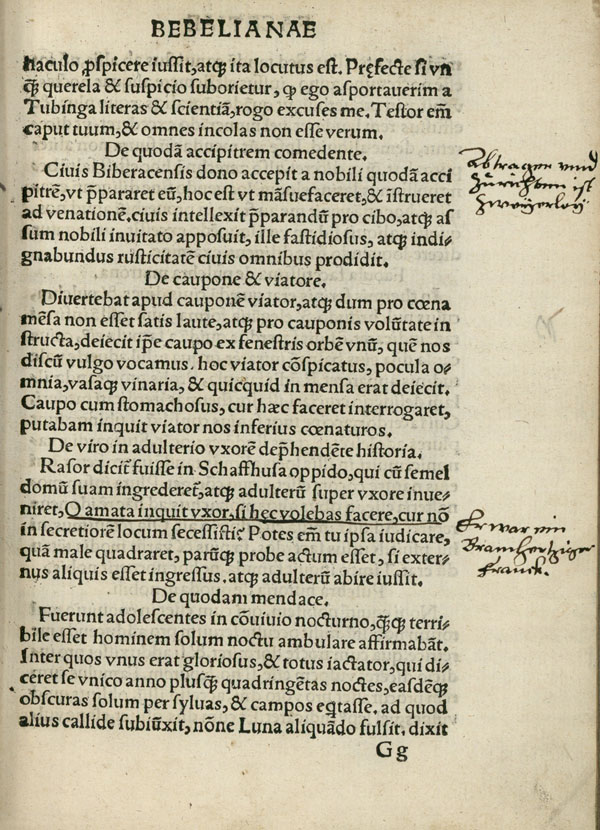 BEBELIANAE
naculo ꝓspicere iussit, atqꝫ ita locutus est. Pręfecte si vn
q̃ꝫ querela & suspicio suborietur, ꝙ ego asportauerim a
Tubinga literas & scientiã, rogo excuses me. Testor em̃
caput tuum, & omnes incolas non esse verum.
De quodã accipitrem comedente.
Ciuis Biberacensis dono accepit a nobili quodã acci
pitrẽ, vt p̃pararet eũ, hoc est vt mãsuefaceret, & ĩstrueret
ad venationẽ. ciuis intellexit p̃parandũ pro cibo, atqꝫ as
sum nobili inuitato apposuit, ille fastidiosus, atqꝫ indi⸗
gnabundus rusticitatẽ ciuis omnibus prodidit.
De caupone & viatore.
Diuertebat apud cauponẽ viator, atqꝫ dum pro cœna
mẽsa non esset satis laute, atqꝫ pro cauponis volũtate in
structa, deiecit ip̃e caupo ex fenestris orbẽ vnũ, quẽ nos
discũ vulgo vocamus. hoc viator cõspicatus, pocula o⸗
mnia, vasaqꝫ vinaria, & quicquid in mensa erat deiecit.
Caupo cum stomachosus, cur hæc faceret interrogaret,
putabam inquit viator nos inferius cœnaturos.
De viro in adulterio vxorẽ dep̃hendẽte historia.
Rasor dicit᷑ fuisse in Schaffhusa oppido, qui cũ semel
domũ suam ingrederet᷑, atqꝫ adulterũ super vxore inue⸗
niret, O amata inquit vxor, si hęc volebas facere, cur nõ
in secretiorẽ locum secessistis? Potes em̃ tu ipsa iudicare,
quã male quadraret, parũqꝫ probe actum esset, si exter⸗
nus aliquis esset ingressus. atqꝫ adulterũ abire iussit.
De quodam mendace.
Fuerunt adolescentes in cõuiuio nocturno, q̃qꝫ terri⸗
bile esset hominem solum noctu ambulare affirmabãt.
Inter quos vnus erat gloriosus, & totus iactator, qui di⸗
ceret se vnico anno plusq̃ꝫ quadringẽtas noctes, easdẽqꝫ
obscuras solum per syluas, & campos eq̃tasse. ad quod
alius callide subiũxit, nõne Luna aliquãdo fulsit. dixit
Gg
Abtragen vnnd
Zůrichten ist
Zweyerley
Er war ein
Franck.